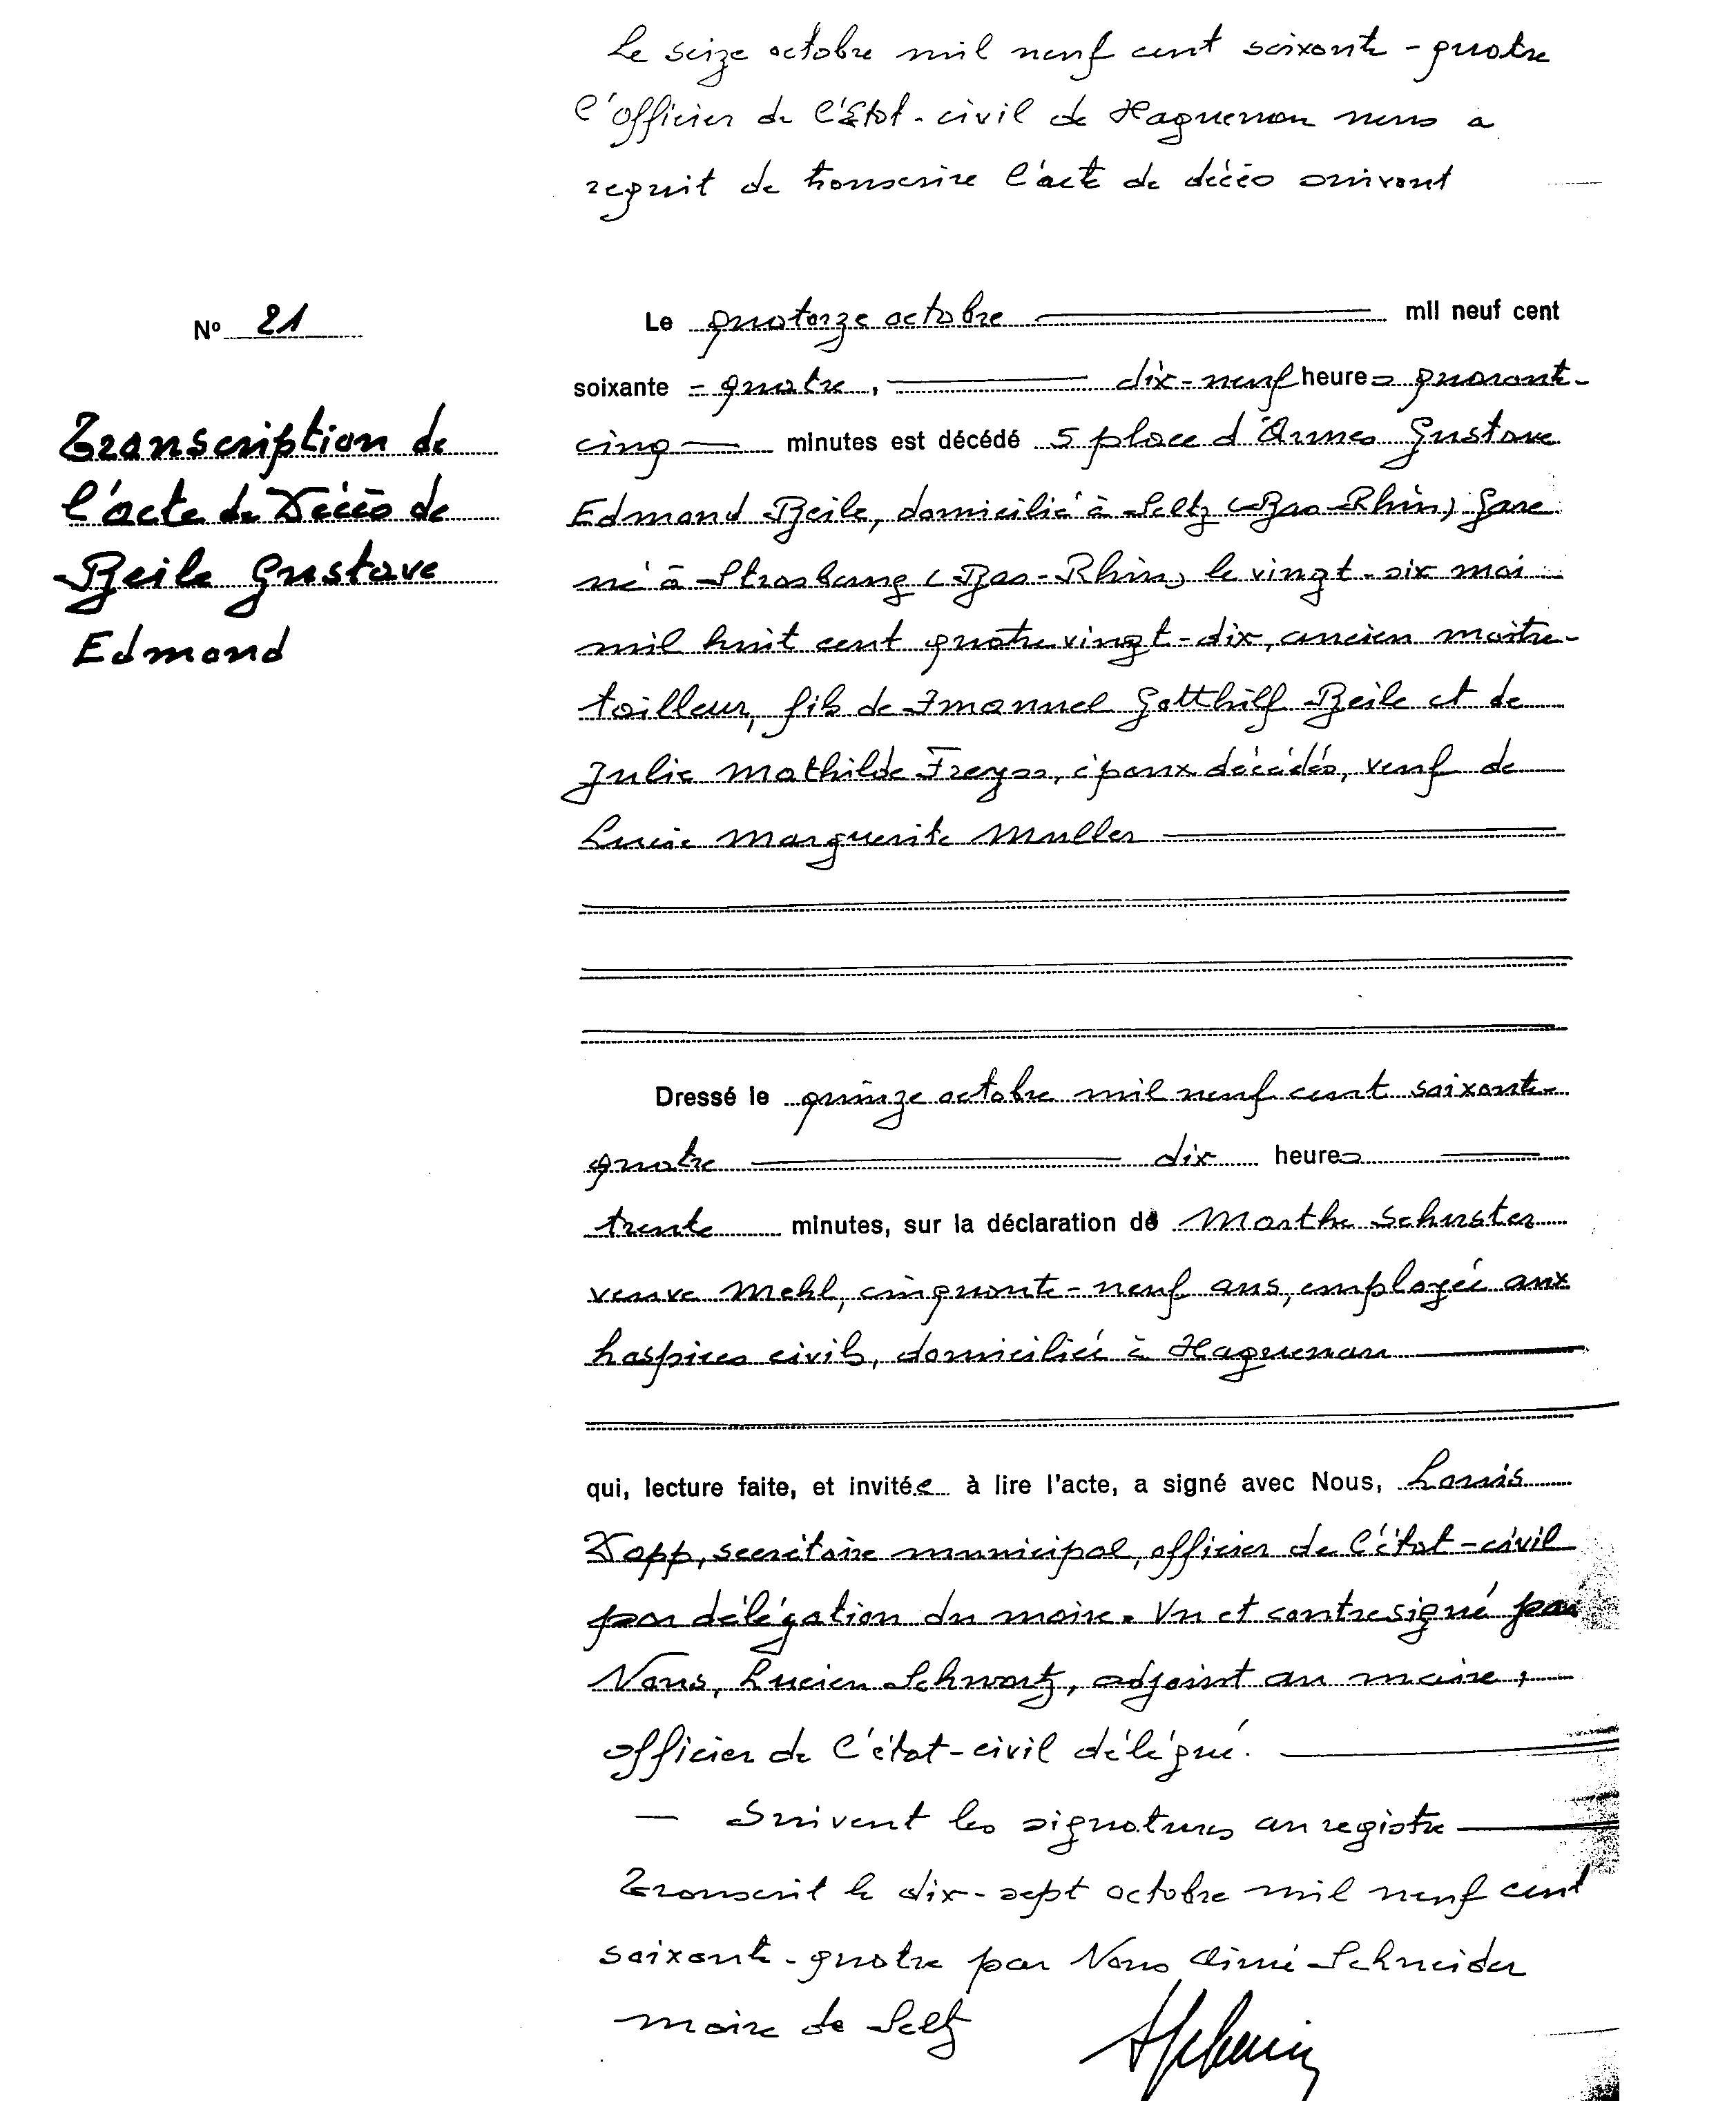 Le seize octobre mil neuf cent soixante-quatre
l'officier de l'État-civil de Haguenau nous a
requit de transcrire l'acte de décès suivant
N° 21
Transcription de
l'acte de Décès de
Beile Gustave
Edmond
Le quatorze octobre mil neuf cent
soixante - quatre, dix-neuf heures quarante-
cinq minutes est décédé 5 place d'Armes Gustave
Edmond Beile, domicilié à Seltz (Bas-Rhin) Gare
né à Strasbourg (Bas-Rhin) le vingt-six mai
mil huit cent quatre vingt-dix, ancien maître-
tailleur, fils de Imanuel Gotthilf Beile et de
Julie Mathilde Freyss, époux décédés, veuf de
Lucie Marguerite Muller
Dressé le quinze octobre mil neuf cent soixante-
quatre dix heures
trente minutes, sur la déclaration de Marthe Schuster
veuve Mehl, cinquante-neuf ans, employée aux
hospices civils, domiciliée à Haguenau
qui, lecture faite, et invitée à lire l'acte, a signé avec Nous, Louis
Dapp, secrétaire municipal, officier de l'état-civil
par délégation du maire. Vu et contresigné par
Nous, Lucien Schwartz, adjoint au maire,
officier de l'état-civil délégué.
— Suivent les signatures au registre
Transcrit le dix-sept octobre mil neuf cent
soixante-quatre par Nous Aimé Schneider
maire de Seltz